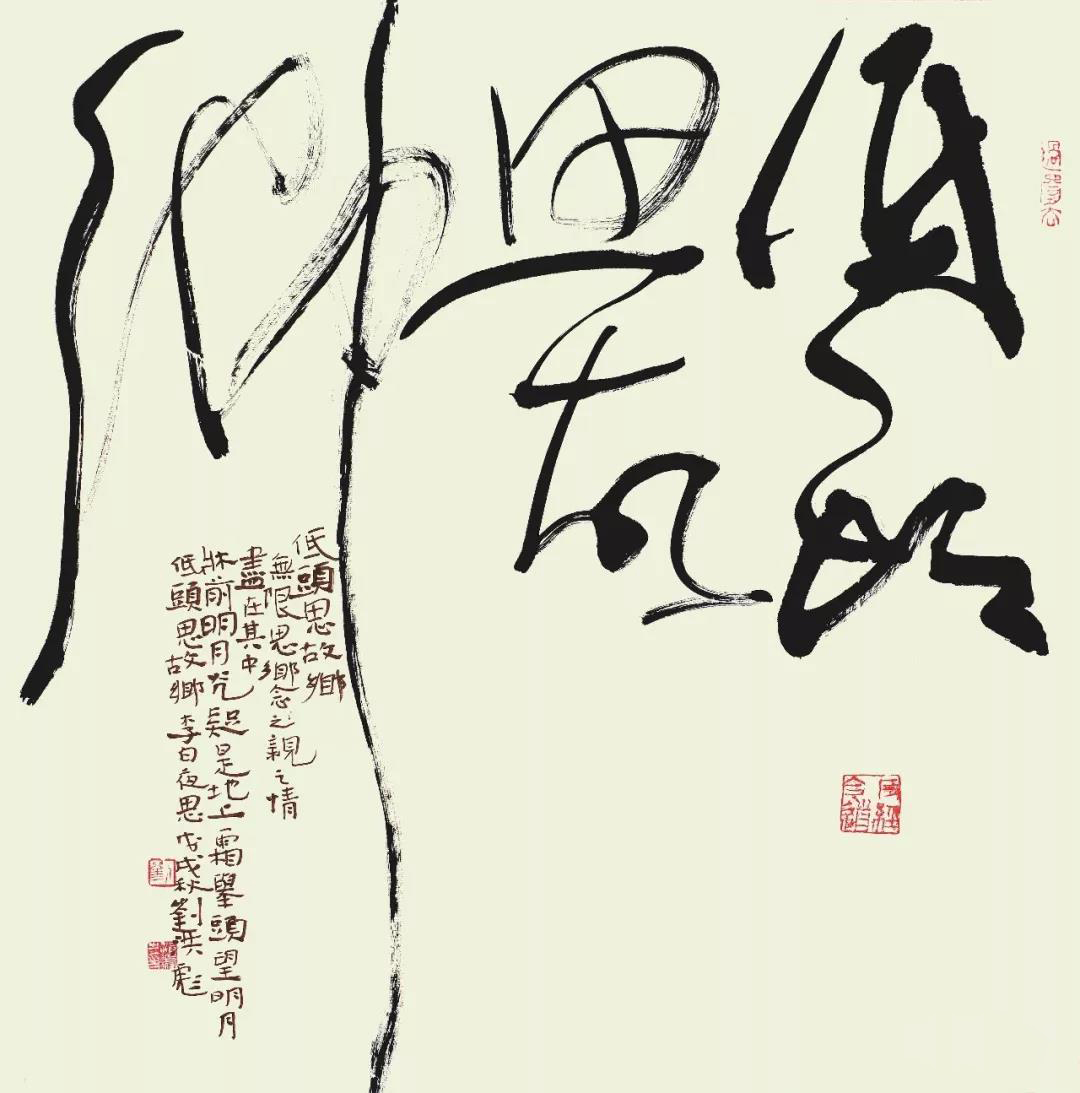 低頭
思故
鄉
低頭思故鄉
無限思鄉念之親之情
盡在其中
牀前明月光疑是地上霜舉頭望明月
低頭思故鄉李白夜思戊戌秋劉洪彪
劉